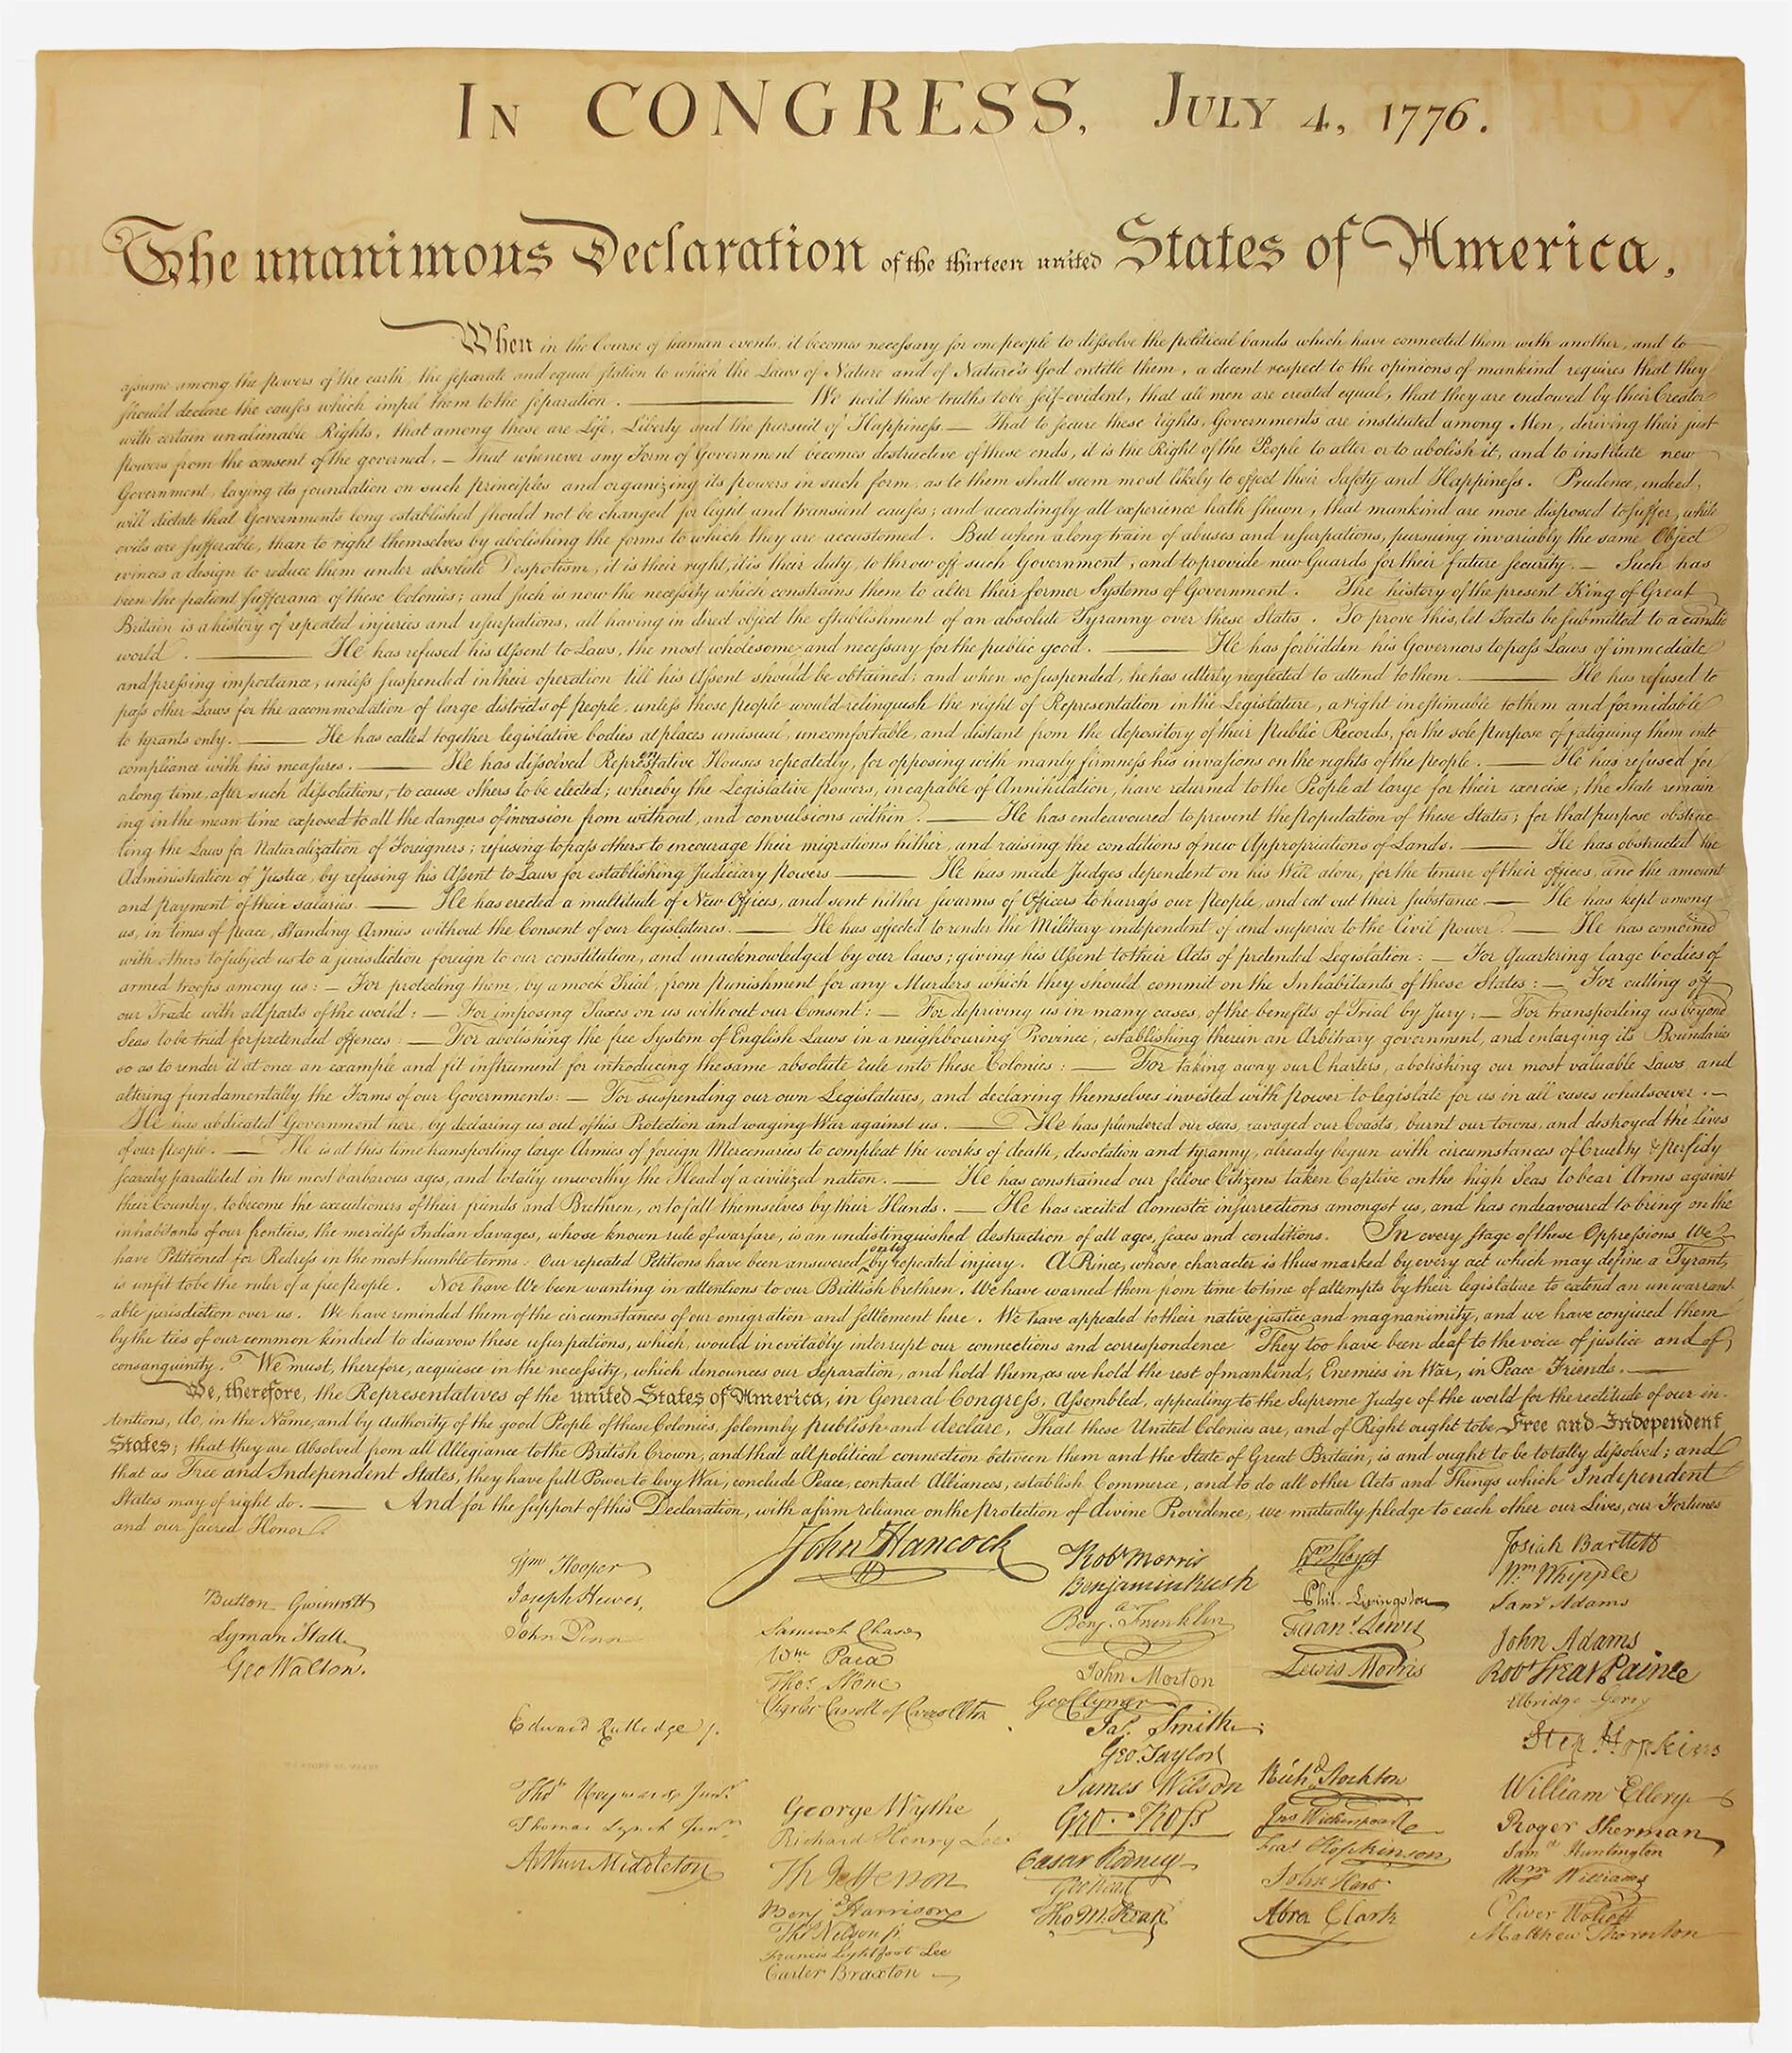 In CONGRESS, July 4, 1776.
The unanimous Declaration of the thirteen united States of America,
When in the Course of human events, it becomes necessary for one people to dissolve the political bands which have connected them with another, and to
assume among the powers of the earth, the separate and equal station to which the Laws of Nature and of Nature's God entitle them, a decent respect to the opinions of mankind requires that they
should declare the causes which impel them to the separation. — We hold these truths to be self-evident, that all men are created equal, that they are endowed by their Creator
with certain unalienable Rights, that among these are Life, Liberty and the pursuit of Happiness. — That to secure these rights, Governments are instituted among Men, deriving their just
powers from the consent of the governed. — That whenever any Form of Government becomes destructive of these ends, it is the Right of the People to alter or to abolish it, and to institute new
Government, laying its foundation on such principles and organizing its powers in such form, as to them shall seem most likely to effect their Safety and Happiness. Prudence, indeed,
will dictate that Governments long established should not be changed for light and transient causes; and accordingly all experience hath shewn, that mankind are more disposed to suffer, while
evils are sufferable, than to right themselves by abolishing the forms to which they are accustomed. But when a long train of abuses and usurpations, pursuing invariably the same Object
evinces a design to reduce them under absolute Despotism, it is their right, it is their duty, to throw off such Government, and to provide new Guards for their future security. — Such has
been the patient sufferance of these Colonies; and such is now the necessity which constrains them to alter their former Systems of Government. The history of the present King of Great
Britain is a history of repeated injuries and usurpations, all having in direct object the establishment of an absolute Tyranny over these States. To prove this, let Facts be submitted to a candid
world. — He has refused his Assent to Laws, the most wholesome and necessary for the public good. — He has forbidden his Governors to pass Laws of immediate
and pressing importance, unless suspended in their operation till his Assent should be obtained; and when so suspended, he has utterly neglected to attend to them. — He has refused to
pass other Laws for the accommodation of large districts of people, unless those people would relinquish the right of Representation in the Legislature, a right inestimable to them and formidable
to tyrants only. — He has called together legislative bodies at places unusual, uncomfortable, and distant from the depository of their Public Records, for the sole purpose of fatiguing them into
compliance with his measures. — He has dissolved Representative Houses repeatedly, for opposing with manly firmness his invasions on the rights of the people. — He has refused for
a long time, after such dissolutions, to cause others to be elected; whereby the Legislative powers, incapable of Annihilation, have returned to the People at large for their exercise; the State remain
ing in the mean time exposed to all the dangers of invasion from without, and convulsions within. — He has endeavoured to prevent the population of these States; for that purpose obstruc-
ting the Laws for Naturalization of Foreigners; refusing to pass others to encourage their migrations hither, and raising the conditions of new Appropriations of Lands. — He has obstructed the
Administration of Justice, by refusing his Assent to Laws for establishing Judiciary powers — He has made Judges dependent on his Will alone, for the tenure of their offices, and the amount
and payment of their salaries. — He has erected a multitude of New Offices, and sent hither swarms of Officers to harrass our people, and eat out their substance. — He has kept among
us, in times of peace, Standing Armies without the Consent of our legislatures. — He has affected to render the Military independent of and superior to the Civil power. — He has combined
with others to subject us to a jurisdiction foreign to our constitution, and unacknowledged by our laws; giving his Assent to their Acts of pretended Legislation: — For quartering large bodies of
armed troops among us: — For protecting them, by a mock Trial, from punishment for any Murders which they should commit on the Inhabitants of these States: — For cutting off
our Trade with all parts of the world: — For imposing Taxes on us without our Consent: — For depriving us in many cases, of the benefits of Trial by Jury: — For transporting us beyond
Seas to be tried for pretended offences: — For abolishing the free System of English Laws in a neighbouring Province, establishing therein an Arbitrary government, and enlarging its Boundaries
so as to render it at once an example and fit instrument for introducing the same absolute rule into these Colonies: — For taking away our Charters, abolishing our most valuable Laws, and
altering fundamentally the Forms of our Governments: — For suspending our own Legislatures, and declaring themselves invested with power to legislate for us in all cases whatsoever. —
He has abdicated Government here, by declaring us out of his Protection and waging War against us. — He has plundered our seas, ravaged our Coasts, burnt our towns, and destroyed the lives
of our people. — He is at this time transporting large Armies of foreign Mercenaries to compleat the works of death, desolation and tyranny, already begun with circumstances of Cruelty & perfidy
scarcely paralleled in the most barbarous ages, and totally unworthy the Head of a civilized nation. — He has constrained our fellow Citizens taken Captive on the high Seas to bear Arms against
their Country, to become the executioners of their friends and Brethren, or to fall themselves by their Hands. — He has excited domestic insurrections amongst us, and has endeavoured to bring on the
inhabitants of our frontiers, the merciless Indian Savages, whose known rule of warfare, is an undistinguished destruction of all ages, sexes and conditions. In every stage of these Oppressions We
have Petitioned for Redress in the most humble terms: Our repeated Petitions have been answered only by repeated injury. A Prince, whose character is thus marked by every act which may define a Tyrant,
is unfit to be the ruler of a free people. Nor have We been wanting in attentions to our Brittish brethren. We have warned them from time to time of attempts by their legislature to extend an unwarrant-
able jurisdiction over us. We have reminded them of the circumstances of our emigration and settlement here. We have appealed to their native justice and magnanimity, and we have conjured them
by the ties of our common kindred to disavow these usurpations, which, would inevitably interrupt our connections and correspondence They too have been deaf to the voice of justice and of
consanguinity. We must, therefore, acquiesce in the necessity, which denounces our Separation, and hold them, as we hold the rest of mankind, Enemies in War, in Peace Friends. —
We, therefore, the Representatives of the united States of America, in General Congress, Assembled, appealing to the Supreme Judge of the world for the rectitude of our in-
tentions, do, in the Name, and by Authority of the good People of these Colonies, solemnly publish and declare, That these United Colonies are, and of Right ought to be Free and Independent
States; that they are Absolved from all Allegiance to the British Crown, and that all political connection between them and the State of Great Britain, is and ought to be totally dissolved; and
that as Free and Independent States, they have full Power to levy War, conclude Peace, contract Alliances, establish Commerce, and to do all other Acts and Things which Independent
States may of right do. — And for the support of this Declaration, with a firm reliance on the protection of divine Providence, we mutually pledge to each other our Lives, our Fortunes
and our sacred Honor.
John Hancock
Button Gwinnett
Lyman Hall
Geo Walton.
Wm Hooper
Joseph Hewes,
John Penn
Edward Rutledge /.
Thos Heyward Junr.
Thomas Lynch Junr.
Arthur Middleton
Samuel Chase
Wm Paca
Thos Stone
Charles Carroll of Carrollton
George Wythe
Richard Henry Lee
Th Jefferson
Benj Harrison
Thos Nelson jr.
Francis Lightfoot Lee
Carter Braxton
Robt Morris
Benjamin Rush
Benja. Franklin
John Morton
Geo Clymer
Jas. Smith
Geo. Taylor
James Wilson
Geo. Ross
Caesar Rodney
Geo Read
Tho M:Kean
Wm Floyd
Phil. Livingston
Frans. Lewis
Lewis Morris
Richd. Stockton
Jno Witherspoon
Fras. Hopkinson
John Hart
Abra Clark
Josiah Bartlett
Wm Whipple
Saml Adams
John Adams
Robt Treat Paine
Elbridge Gerry
Step. Hopkins
William Ellery
Roger Sherman
Saml Huntington
Wm Williams
Oliver Wolcott
Matthew Thornton